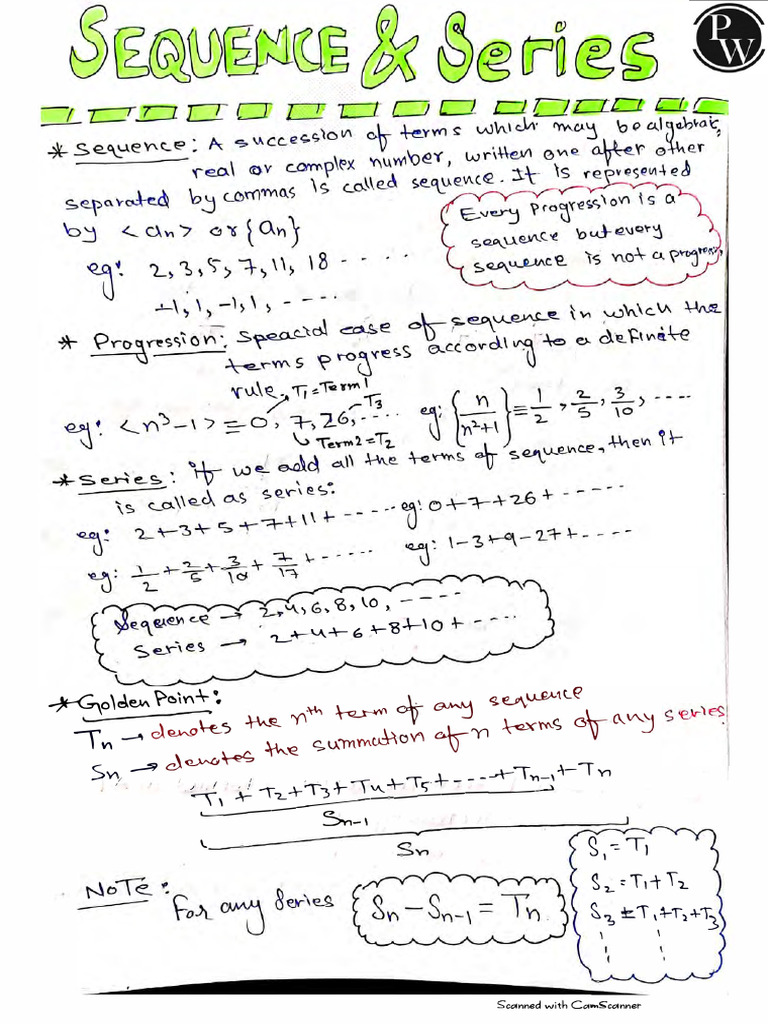 SEQUENCE & Series
PW
* Sequence: A succession of terms which may be algebraic,
real or complex number, written one after other
separated by commas is called sequence. It is represented
by <an> or {an}
Every Progression is a
sequence but every
sequence is not a progress
eg: 2, 3, 5, 7, 11, 18 - - - -
-1, 1, -1, 1, - - - -
* Progression: Speacial case of sequence in which the
terms progress according to a definite
rule. T1 = Term 1
T3
eg: <n³-1> = 0, 7, 26, ..... eg: {n/(n²+1)} = 1/2, 2/5, 3/10, ....
Term 2 = T2
* Series: if we add all the terms of sequence, then it
is called as series:
eg: 2+3+5+7+11+ ------ eg: 0+7+26+ ------
eg: 1/2 + 2/5 + 3/10 + 7/17 + ...... eg: 1-3+9-27+ ----
Sequence → 2, 4, 6, 8, 10, -----
Series → 2+4+6+8+10+ ----
* Golden Point:
Tn → denotes the nth term of any sequence
Sn → denotes the summation of n terms of any series
T1 + T2 + T3 + T4 + T5 + ----- + Tn-1 + Tn
Sn-1
Sn
S1 = T1
S2 = T1 + T2
S3 = T1 + T2 + T3
NOTE: For any Series Sn - Sn-1 = Tn
Scanned with CamScanner